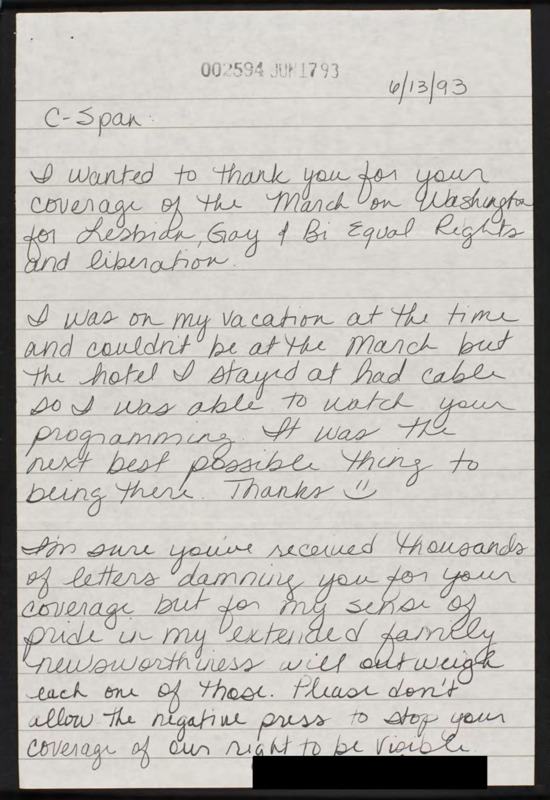 002594 JUN 17 93
6/13/93
C-Span:
I wanted to thank you for your
coverage of the March on Washington
for Lesbian, Gay & Bi Equal Rights
and liberation.
I was on my vacation at the time
and couldn't be at the March but
the hotel I stayed at had cable
so I was able to watch your
programming. It was the
next best possible thing to
being there. Thanks
I'm sure you've received thousands
of letters damning you for your
coverage but for my sense of
pride in my extended family
newsworthiness will outweigh
each one of those. Please don't
allow the negative press to stop your
coverage of our right to be visible